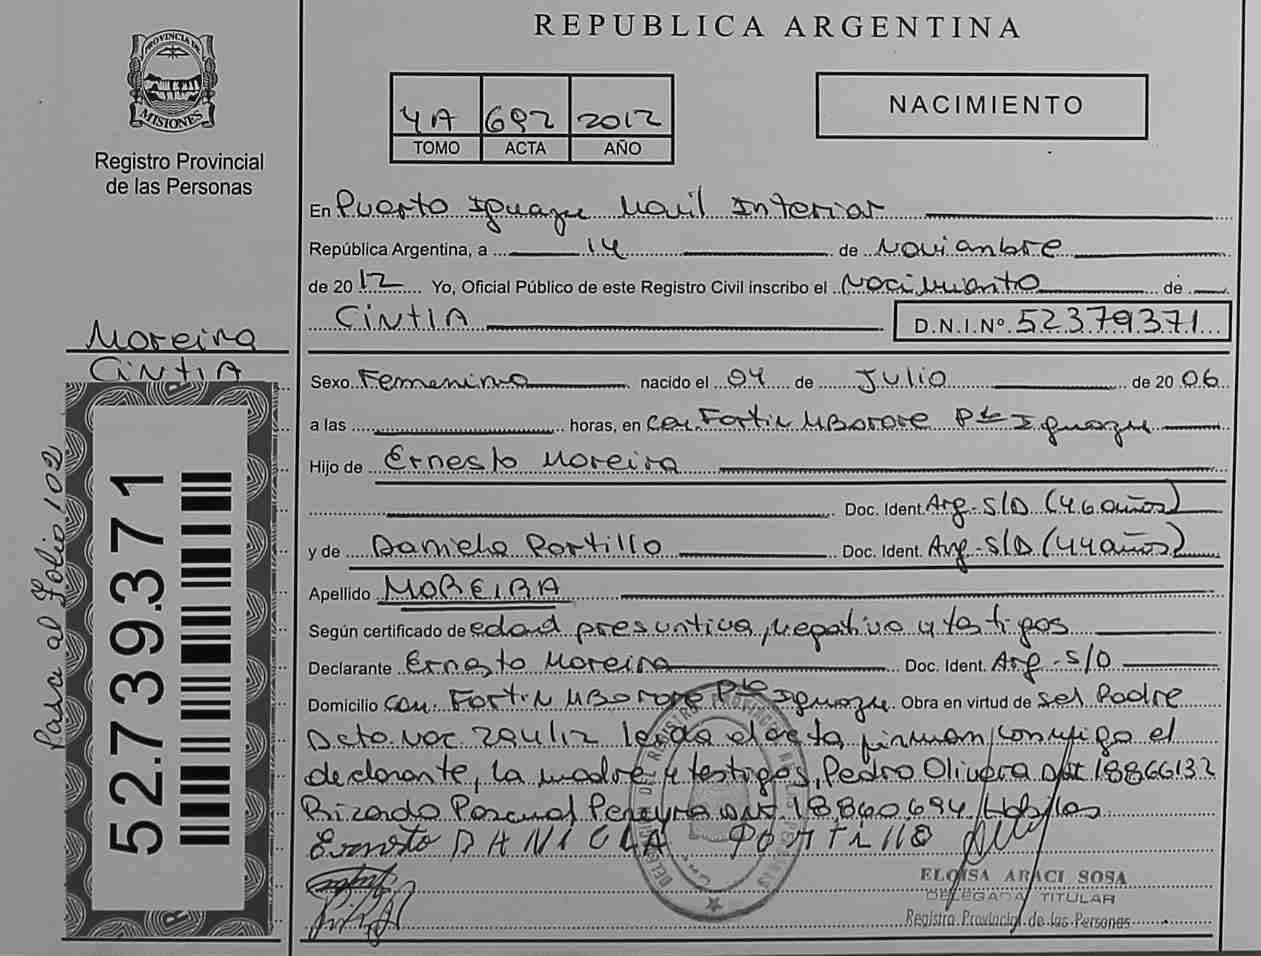 REPUBLICA ARGENTINA
PROVINCIA DE
MISIONES
Registro Provincial
de las Personas
4A 692 2012
TOMO ACTA AÑO
NACIMIENTO
En Puerto Iguazu Movil Interior
República Argentina, a 14 de Noviembre
de 2012 Yo, Oficial Público de este Registro Civil inscribo el Nacimiento de
CINTIA
D.N.I.Nº 52379371
Moreira
CINTIA
Sexo Femenino nacido el 04 de Julio de 2006
a las horas, en Com. Fortin MBorore Pto Iguazu
Hijo de Ernesto Moreira
Doc. Ident. Arg. S/D (46 años)
y de Daniela Portillo Doc. Ident. Arg. S/D (44 años)
Apellido MOREIRA
Según certificado de edad presuntiva, negativo y testigos
Declarante Ernesto Moreira Doc. Ident. Arg. S/D
Domicilio Com. Fortin MBorore Pto Iguazu. Obra en virtud de ser Padre
Dcto. Nac. 294/12 leida el acta, firman conmigo el
declarante, la madre y testigos, Pedro Olivera DNI 18866132
Rizardo Pascual Pereyra DNI 18.860.694, Habiles
Ernesto DANIELA PORTILLO
ELOISA ARACI SOSA
DELEGADA TITULAR
Registro Provincial de las Personas
Pasa al Folio 102
52.739.371